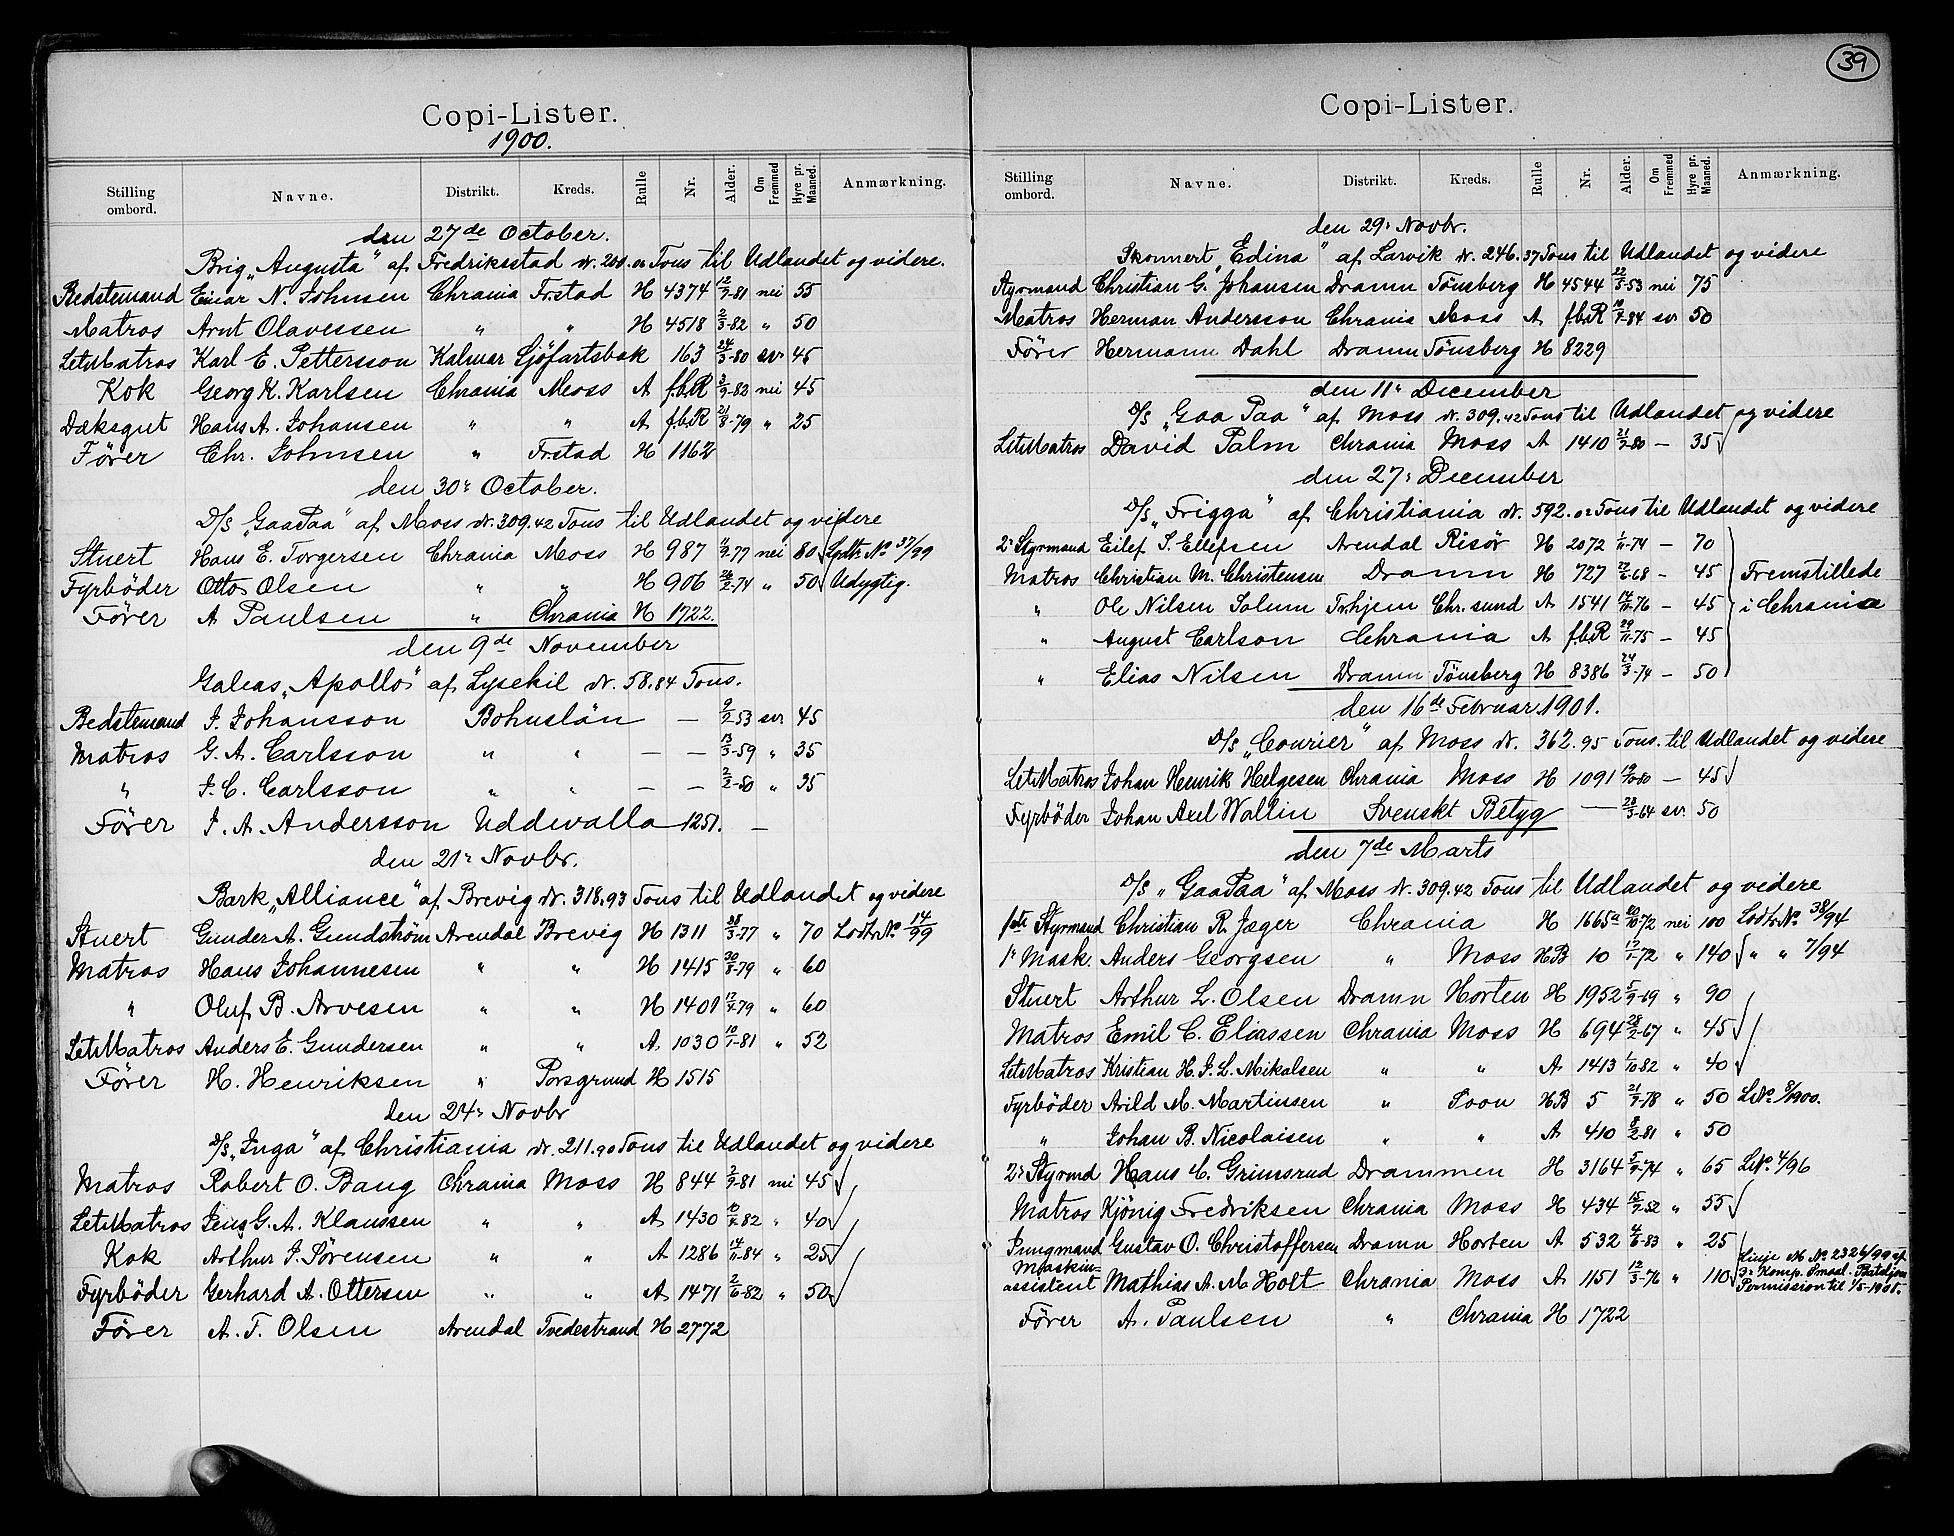 Copi-Lister.
1900.
Stilling ombord. Navne. Distrikt. Kreds. Rulle Nr. Alder. Om Fremmed Hyre pr. Maaned. Anmærkning.
den 27de October.
Brig „Augusta" af Fredriksstad dr. 200. Tons til Udlandet og videre.
Bedstemand Einar N. Johnsen Chrania Frstad H 4374 12/7-81 nei 55
Matros Arnt Olavessen " " H 4518 2/3-82 " 50
LetMatros Karl E. Pettersson Kalmar Sjöfartsbok 163 24/3-80 sv. 45
Kok Georg K. Karlsen Chrania Moss A fbR 3/9-82 nei 45
Dæksgut Hans A. Johansen " " A fbR 21/8-79 " 25
Fører Chr. Johnsen " Frstad H 1162
den 30te October.
D/S „GaaPaa" af Moss dr. 309.42 Tons til Udlandet og videre
Stuert Hans E. Torgersen Chrania Moss H 987 11/9-77 nei 80 No 37/99
Fyrbøder Otto Olsen " " H 906 26/2-74 " 50 Udygtig.
Fører A Paulsen " Chrania H 1722.
den 9de November
Galeas „Apollo" af Lysekil dr. 58.84 Tons.
Bedstemand J. Johansson Bohuslän — 9/2-53 sv. 45
Matros G. A. Carlsson " " — — 13/3-59 " 35
" J. C. Carlsson " " — — 2/2-80 " 35
Fører J. A. Andersson Uddevalla 1251. —
den 21te Novbr.
Bark „Alliance" af Brevig dr. 318.93 Tons til Udlandet og videre
Stuert Gunder A. Gundstrøm Arendal Brevig H 1311 28/3-77 " 70 No 14/99
Matros Hans Johannesen " " H 1415 20/8-79 " 60
" Oluf B. Arvesen " " H 1401 17/4-79 " 60
LetMatros Anders E. Gundersen " " A 1030 10/1-81 " 52
Fører H. Henriksen " Porsgrund H 1515
den 24te Novbr
D/S „Inga" af Christiania dr. 211.90 Tons til Udlandet og videre
Matros Robert O. Bang Chrania Moss H 844 2/9-81 nei 45
LetMatros Jens G. A. Klaussen " " A 1430 10/4-82 " 40
Kok Arthur J. Sørensen " " A 1286 14/11-84 " 25
Fyrbøder Gerhard A. Ottersen " " A 1471 2/6-82 " 50
Fører A. T. Olsen Arendal Tvedestrand H 2772
39
Copi-Lister.
Stilling ombord. Navne. Distrikt. Kreds. Rulle Nr. Alder. Om Fremmed Hyre pr. Maaned. Anmærkning.
den 29te Novbr.
Skonnert „Edina" af Larvik dr. 246.37 Tons til Udlandet og videre
Styrmand Christian G. Johansen Dramn Tønsberg H 4544 22/5-53 nei 75
Matros Herman Andersson Chrania Moss A fbR 10/7-84 sv. 50
Fører Hermann Dahl Dramn Tønsberg H 8229
den 11te December
D/S „Gaa Paa" af Moss dr. 309.42 Tons til Udlandet og videre
LetMatros David Palm Chrania Moss A 1410 21/7-80 — 35
den 27te December
D/S „Frigga" af Christiania dr. 592. Tons til Udlandet og videre
2. Styrmand Eilef S. Ellefsen Arendal Risør H 2072 1/11-74 — 70
Matros Christian M. Christensen Dramn H 727 22/6-68 — 45 Fremstillede
" Ole Nilsen Solum Trhjem Chr.sund A 1541 14/11-76 — 45 i Chrania
" August Carlson Chrania A fbR 29/11-75 — 45
" Elias Nilsen Dramn Tønsberg H 8386 24/3-74 — 50
den 16de Februar 1901.
D/S „Courier" af Moss dr. 362.95 Tons. til Udlandet og videre
LetMatros Johan Henrik Helgesen Chrania Moss H 1091 19/10-80 — 45
Fyrbøder Johan Axel Wallin Svenskt Betyg — 28/3-64 sv. 50
den 7de Marts
D/S „GaaPaa" af Moss dr. 309.42 Tons til Udlandet og videre
1ste Styrmand Christian R. Jæger Chrania H 1665a 20/10-72 nei 100 No 38/94
1te Mask. Anders Georgsen " Moss HB 10 17/1-72 " 140 " " 7/94
Stuert Arthur L. Olsen Dramn Horten H 1952 5/9-69 " 90
Matros Emil C. Eliassen Chrania Moss H 694 28/2-67 " 45
LetMatros Kristian H. J. L. Mikalsen " " A 1413 1/10-82 " 40
Fyrbøder Arild M. Martinsen " Soon HB 5 21/7-78 " 50 L.No. 9/1900.
" Johan B. Nicolaisen " " A 410 8/2-81 " 50
2. Styrmd Hans C. Grimsrud Drammen H 3164 5/9-74 " 65 L.No. 4/96
Matros Kjønig Fredriksen Chrania Moss H 434 15/7-52 " 55
Jungmand Gustav O. Christoffersen Dramn Horten A 532 4/6-83 " 25
Maskinassistent Mathias A. M. Holt Chrania Moss A 1151 12/3-76 " 110 Linje No 2326/99 af 3. Komp. Smaal. Bataljon Permission til 1/5-1901.
Fører A. Paulsen " Chrania H 1722